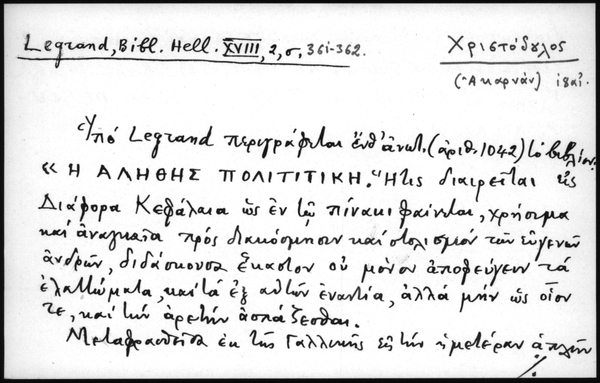 Legrand, Bibl. Hell. XVIII, 2, σ. 361-362.
Χριστόδουλος
(Ἀκαρνάν) ἰδαί.
Ὑπό Legrand περιγράφεται ἔνθ' ἀνωτ. (ἀριθ. 1042) τό βιβλίον:
« Η ΑΛΗΘΗΣ ΠΟΛΙΤΙΤΙΚΗ. Ἥτις διαιρεῖται εἰς
Διάφορα Κεφάλαια ὡς ἐν τῷ πίνακι φαίνεται, χρήσιμα
καί ἀναγκαῖα πρός διακόσμησιν καί στολισμόν τῶν εὐγενῶν
ἀνδρῶν, διδάσκουσα ἕκαστον οὐ μόνον ἀποφεύγειν τά
ἐλαττώματα, καί τά ἐξ αὐτῶν ἐναντία, ἀλλά μήν ὡς οἷον
τε, καί τήν ἀρετήν ἀσπάζεσθαι.
Μεταφρασθεῖσα ἐκ τῆς Γαλλικῆς εἰς τήν ἡμετέραν ἁπλῆν
./.